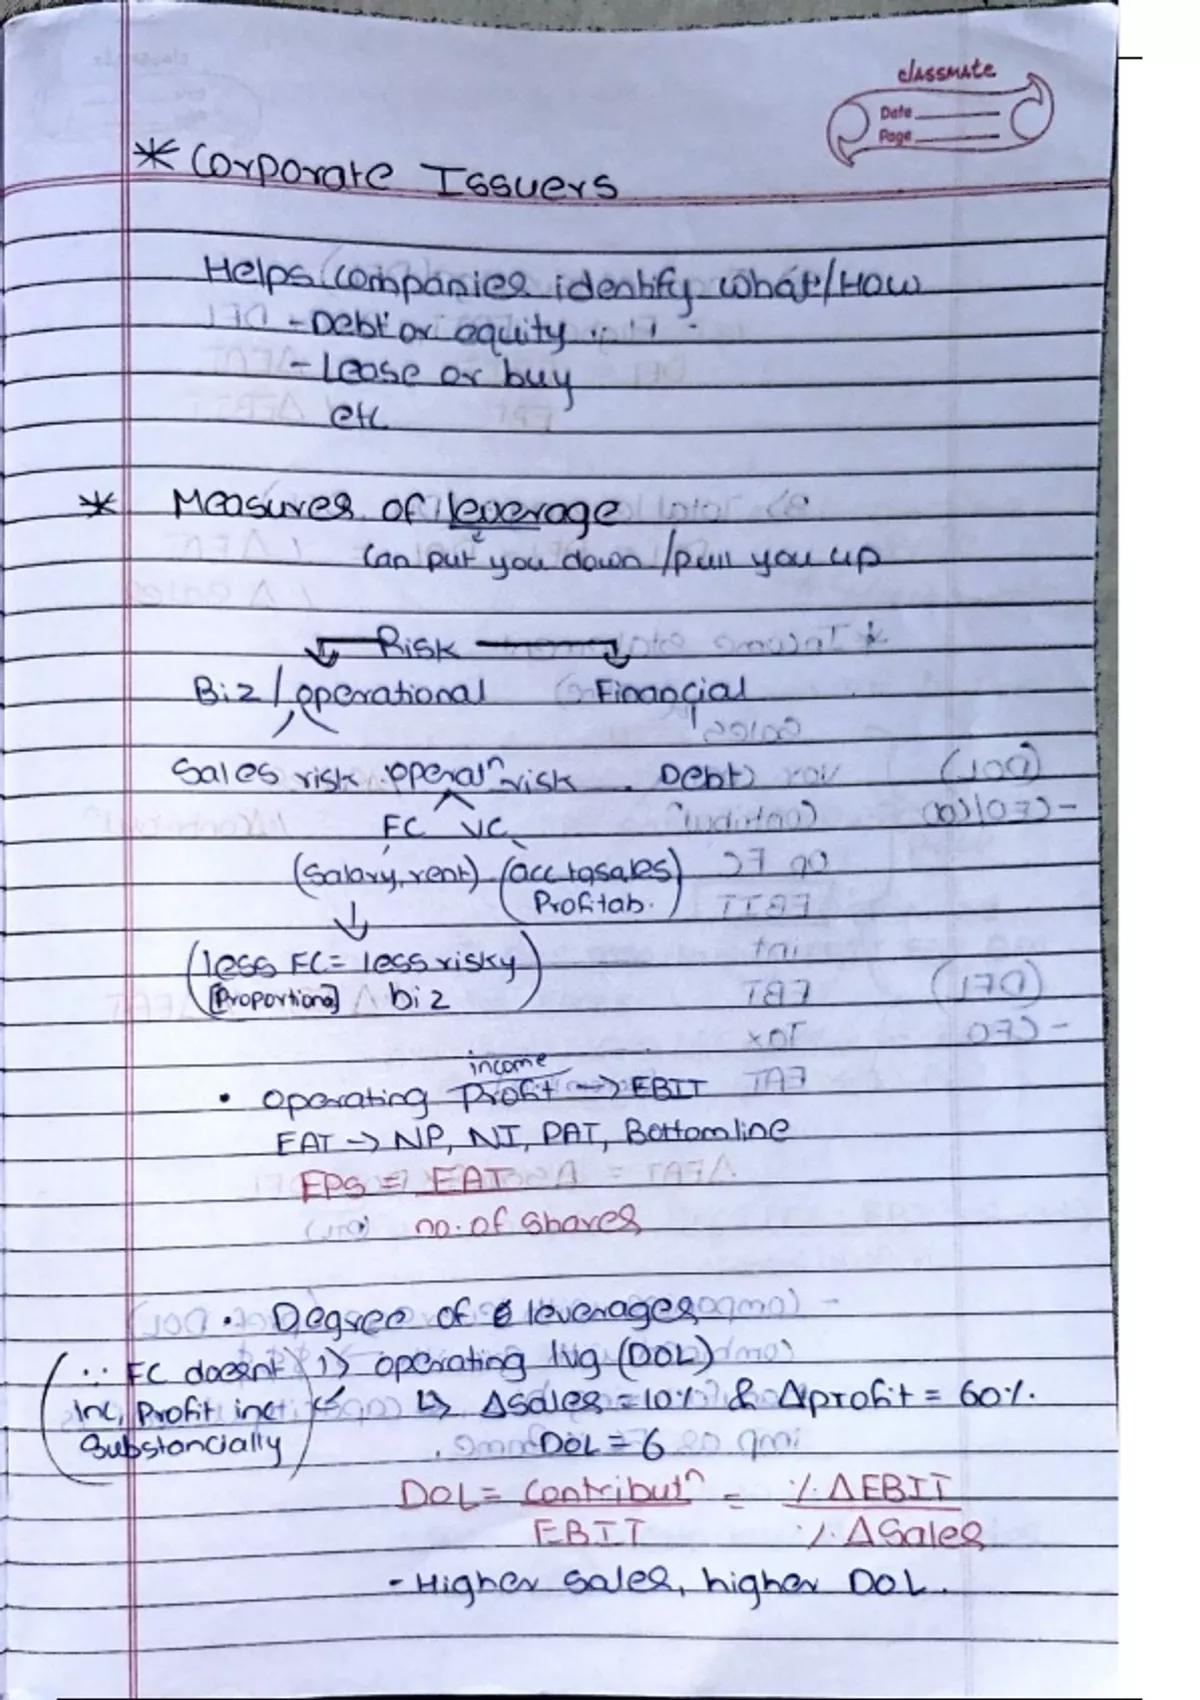 classmate
Date
Page
* Corporate Issuers
Helps companies identify what/How
- Debt or equity
- Lease or buy
etc
* Measures of leverage
Can put you down / pull you up
Risk
Biz / operational Financial
Sales risk operatⁿ risk Debt
FC VC
(Salary, rent) (acc to sales)
Profitab.
(less FC = less risky
[Proportiona] biz)
income
• Operating Profit → EBIT
EAT → NP, NI, PAT, Bottomline
EPS = EAT
no. of shares
• Degree of leverages
∵ FC doesnt 1) operating lvg (DOL)
inc, Profit inc ↳ Δsales = 10% & Δprofit = 60%.
Substancially DOL = 6
DOL = Contributⁿ = % Δ EBIT
EBIT % Δ Sales
- Higher sales, higher DOL.